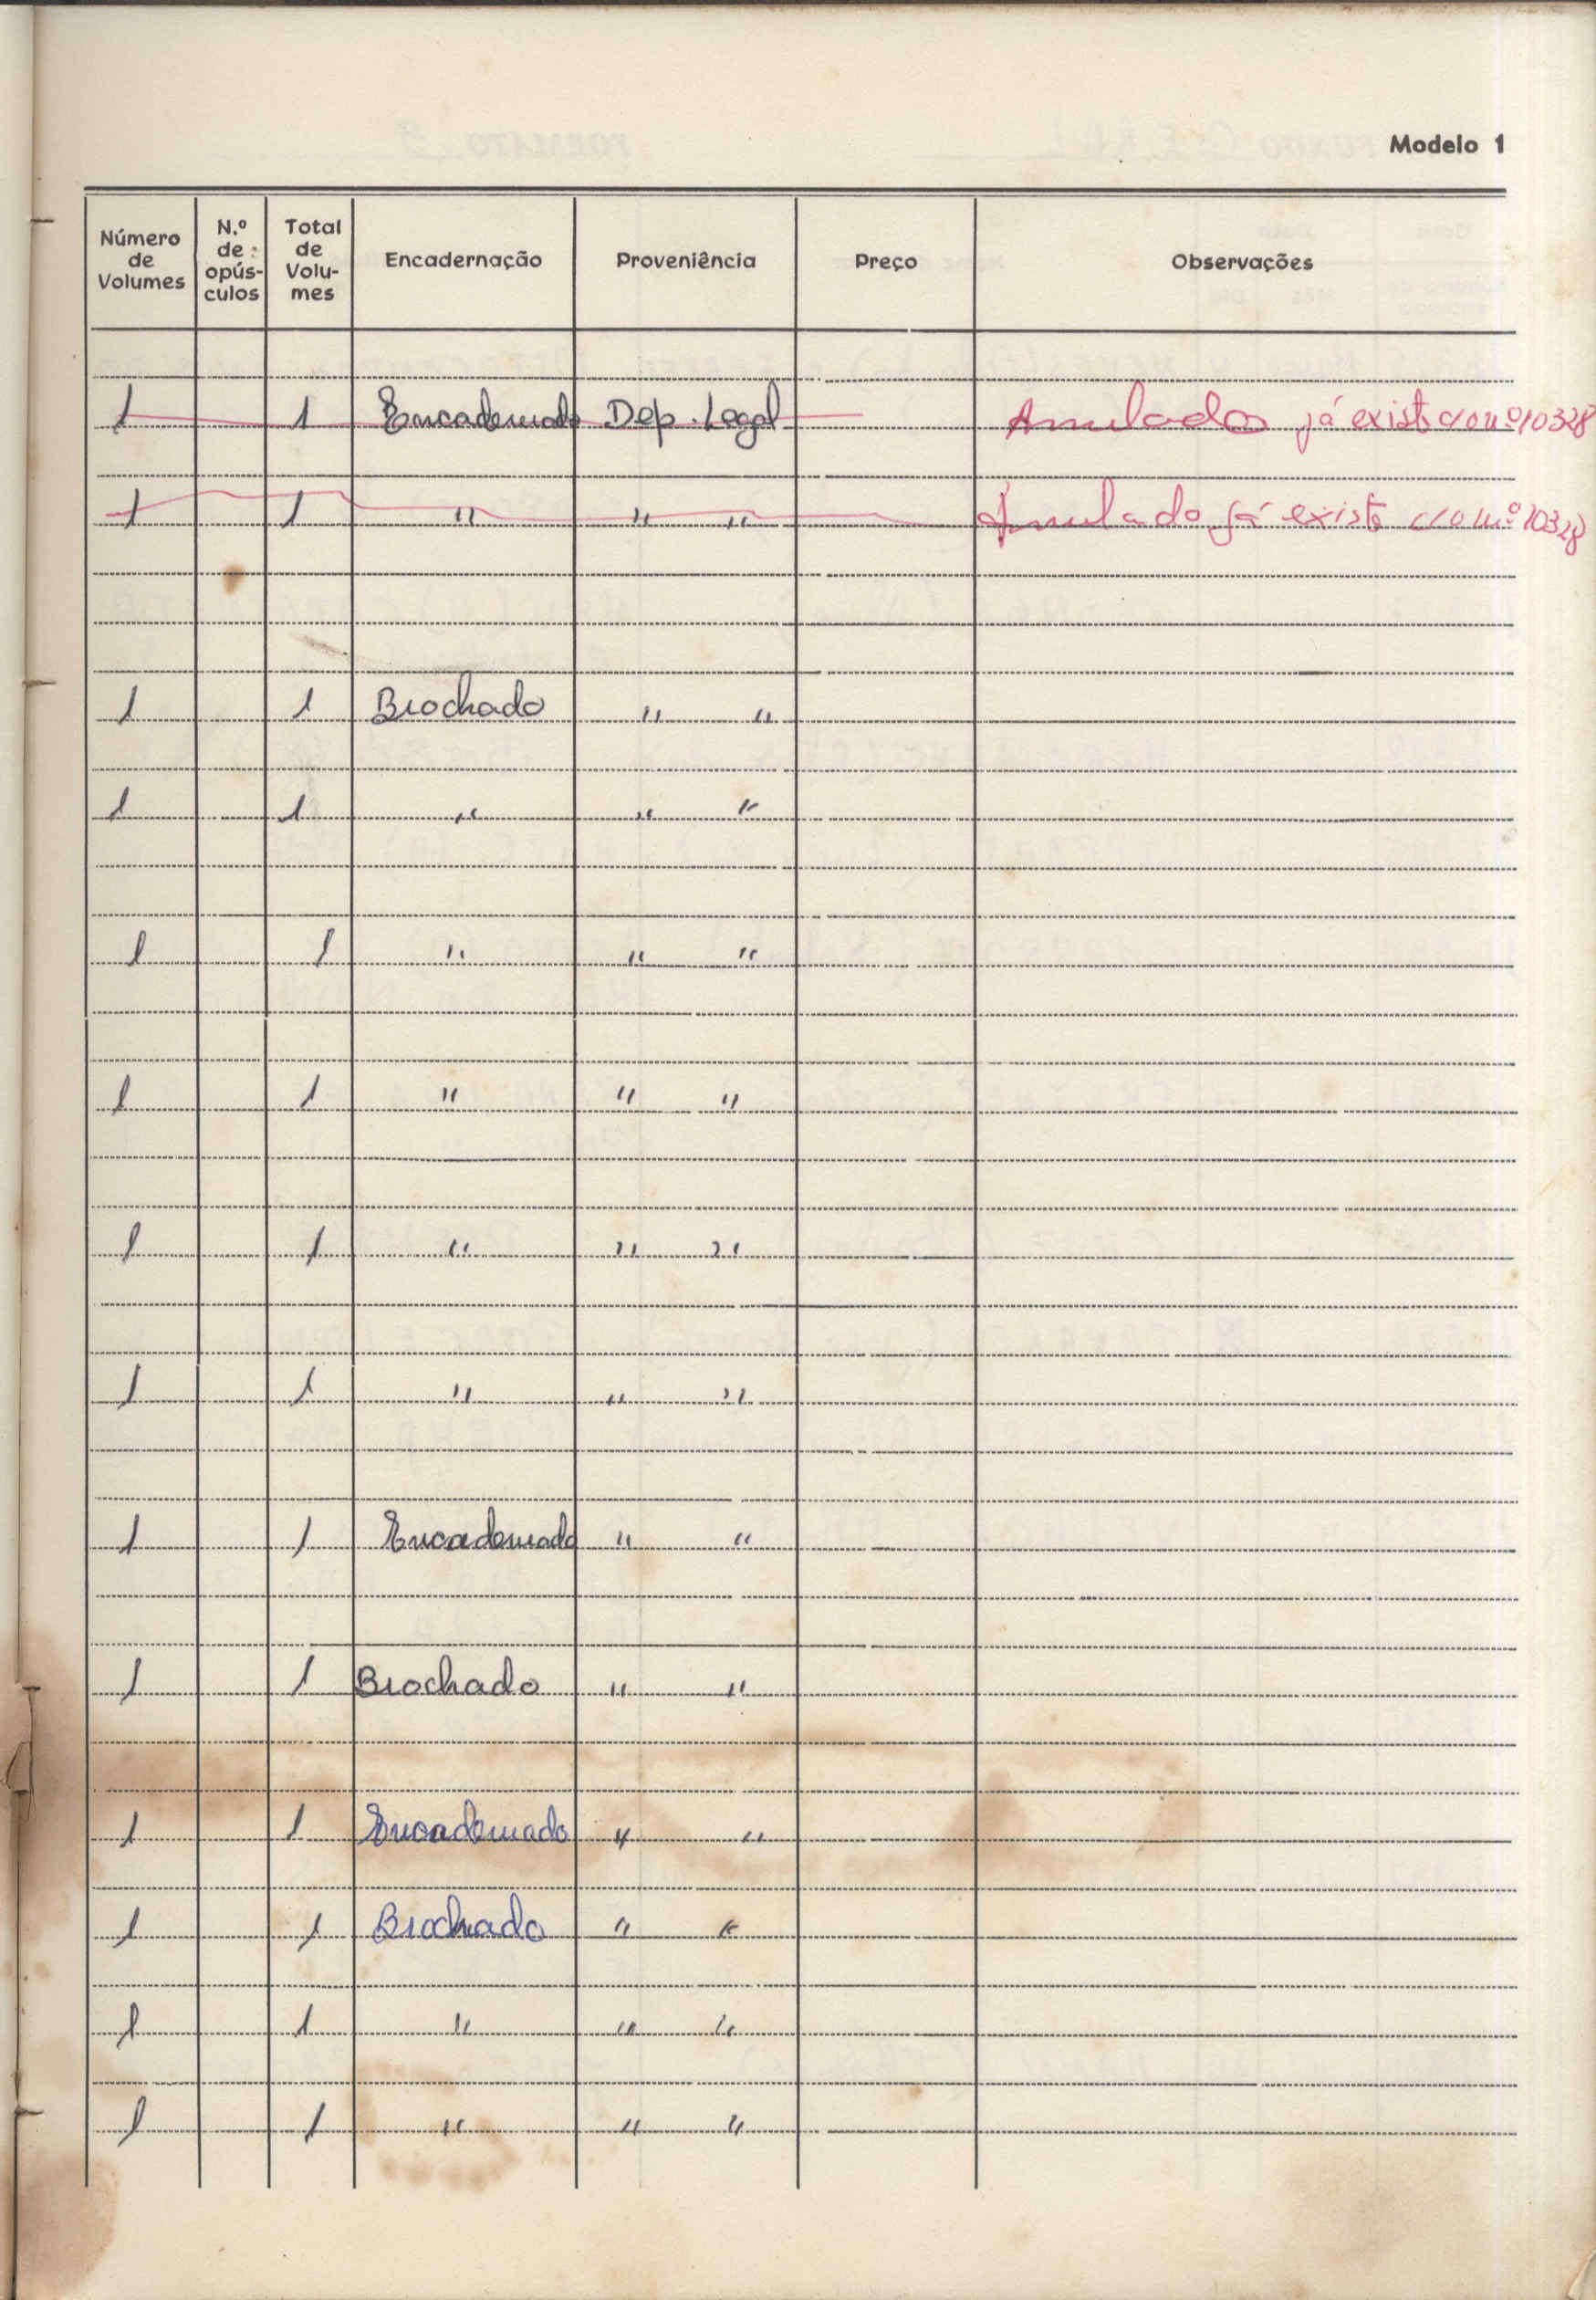 Modelo 1
Número de Volumes N.º de opúsculos Total de Volumes Encadernação Proveniência Preço Observações
1 1 Encadernado Dep. Legal Anulado já existe c/o nº 10328
1 1 " " " Anulado já existe c/o nº 10328
1 1 Brochado " "
1 1 " " "
1 1 " " "
1 1 " " "
1 1 " " "
1 1 " " "
1 1 Encadernado " "
1 1 Brochado " "
1 1 Encadernado " "
1 1 Brochado " "
1 1 " " "
1 1 " " "